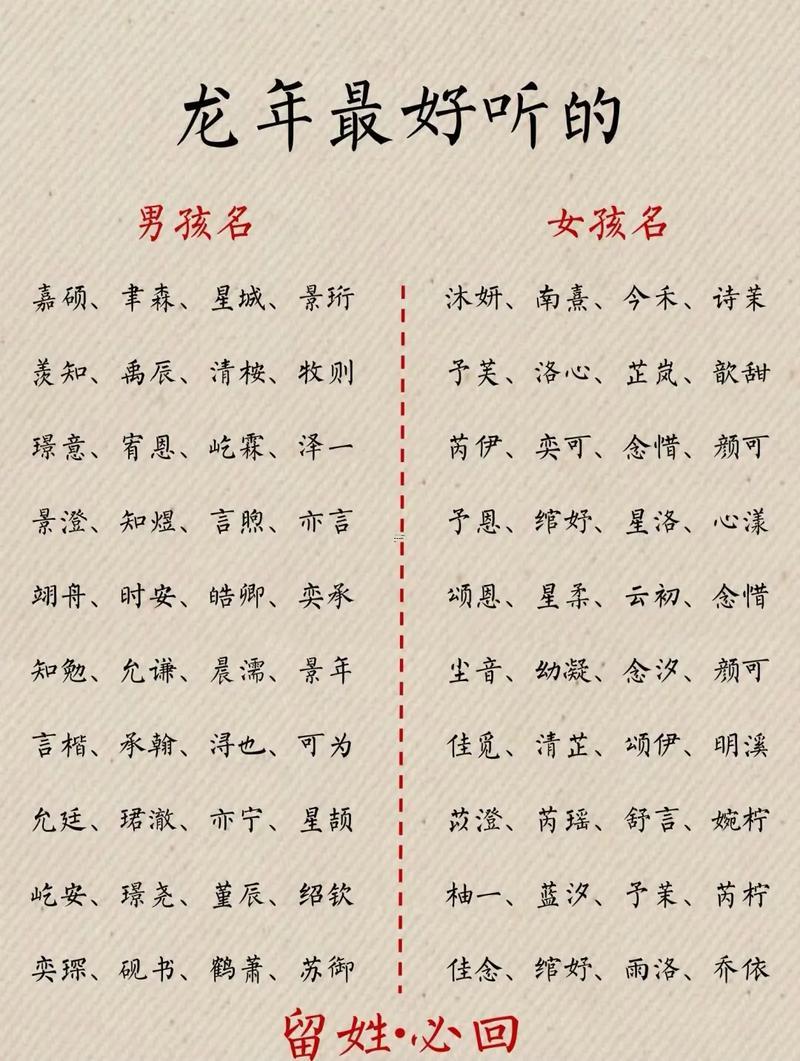 龙年最好听的
男孩名
嘉硕、聿森、星城、景珩
羡知、禹辰、清桉、牧则
璟意、宥恩、屹霖、泽一
景澄、知煜、言煦、亦言
翊舟、时安、皓卿、奕承
知勉、允谦、晨濡、景年
言楷、承翰、浔也、可为
允廷、珺澈、亦宁、星颉
屹安、璟尧、堇辰、绍钦
奕琛、砚书、鹤萧、苏御
女孩名
沐妍、南熹、今禾、诗茉
予芙、洛心、芷岚、歆甜
芮伊、奕可、念惜、颜可
予恩、绾妤、星洛、心漾
颂恩、星柔、云初、念惜
尘音、幼凝、念汐、颜可
佳觅、清芷、颂伊、明溪
苡澄、芮瑶、舒言、婉柠
柚一、蓝汐、予茉、芮柠
佳念、绾妤、雨洛、乔依
留姓·必回